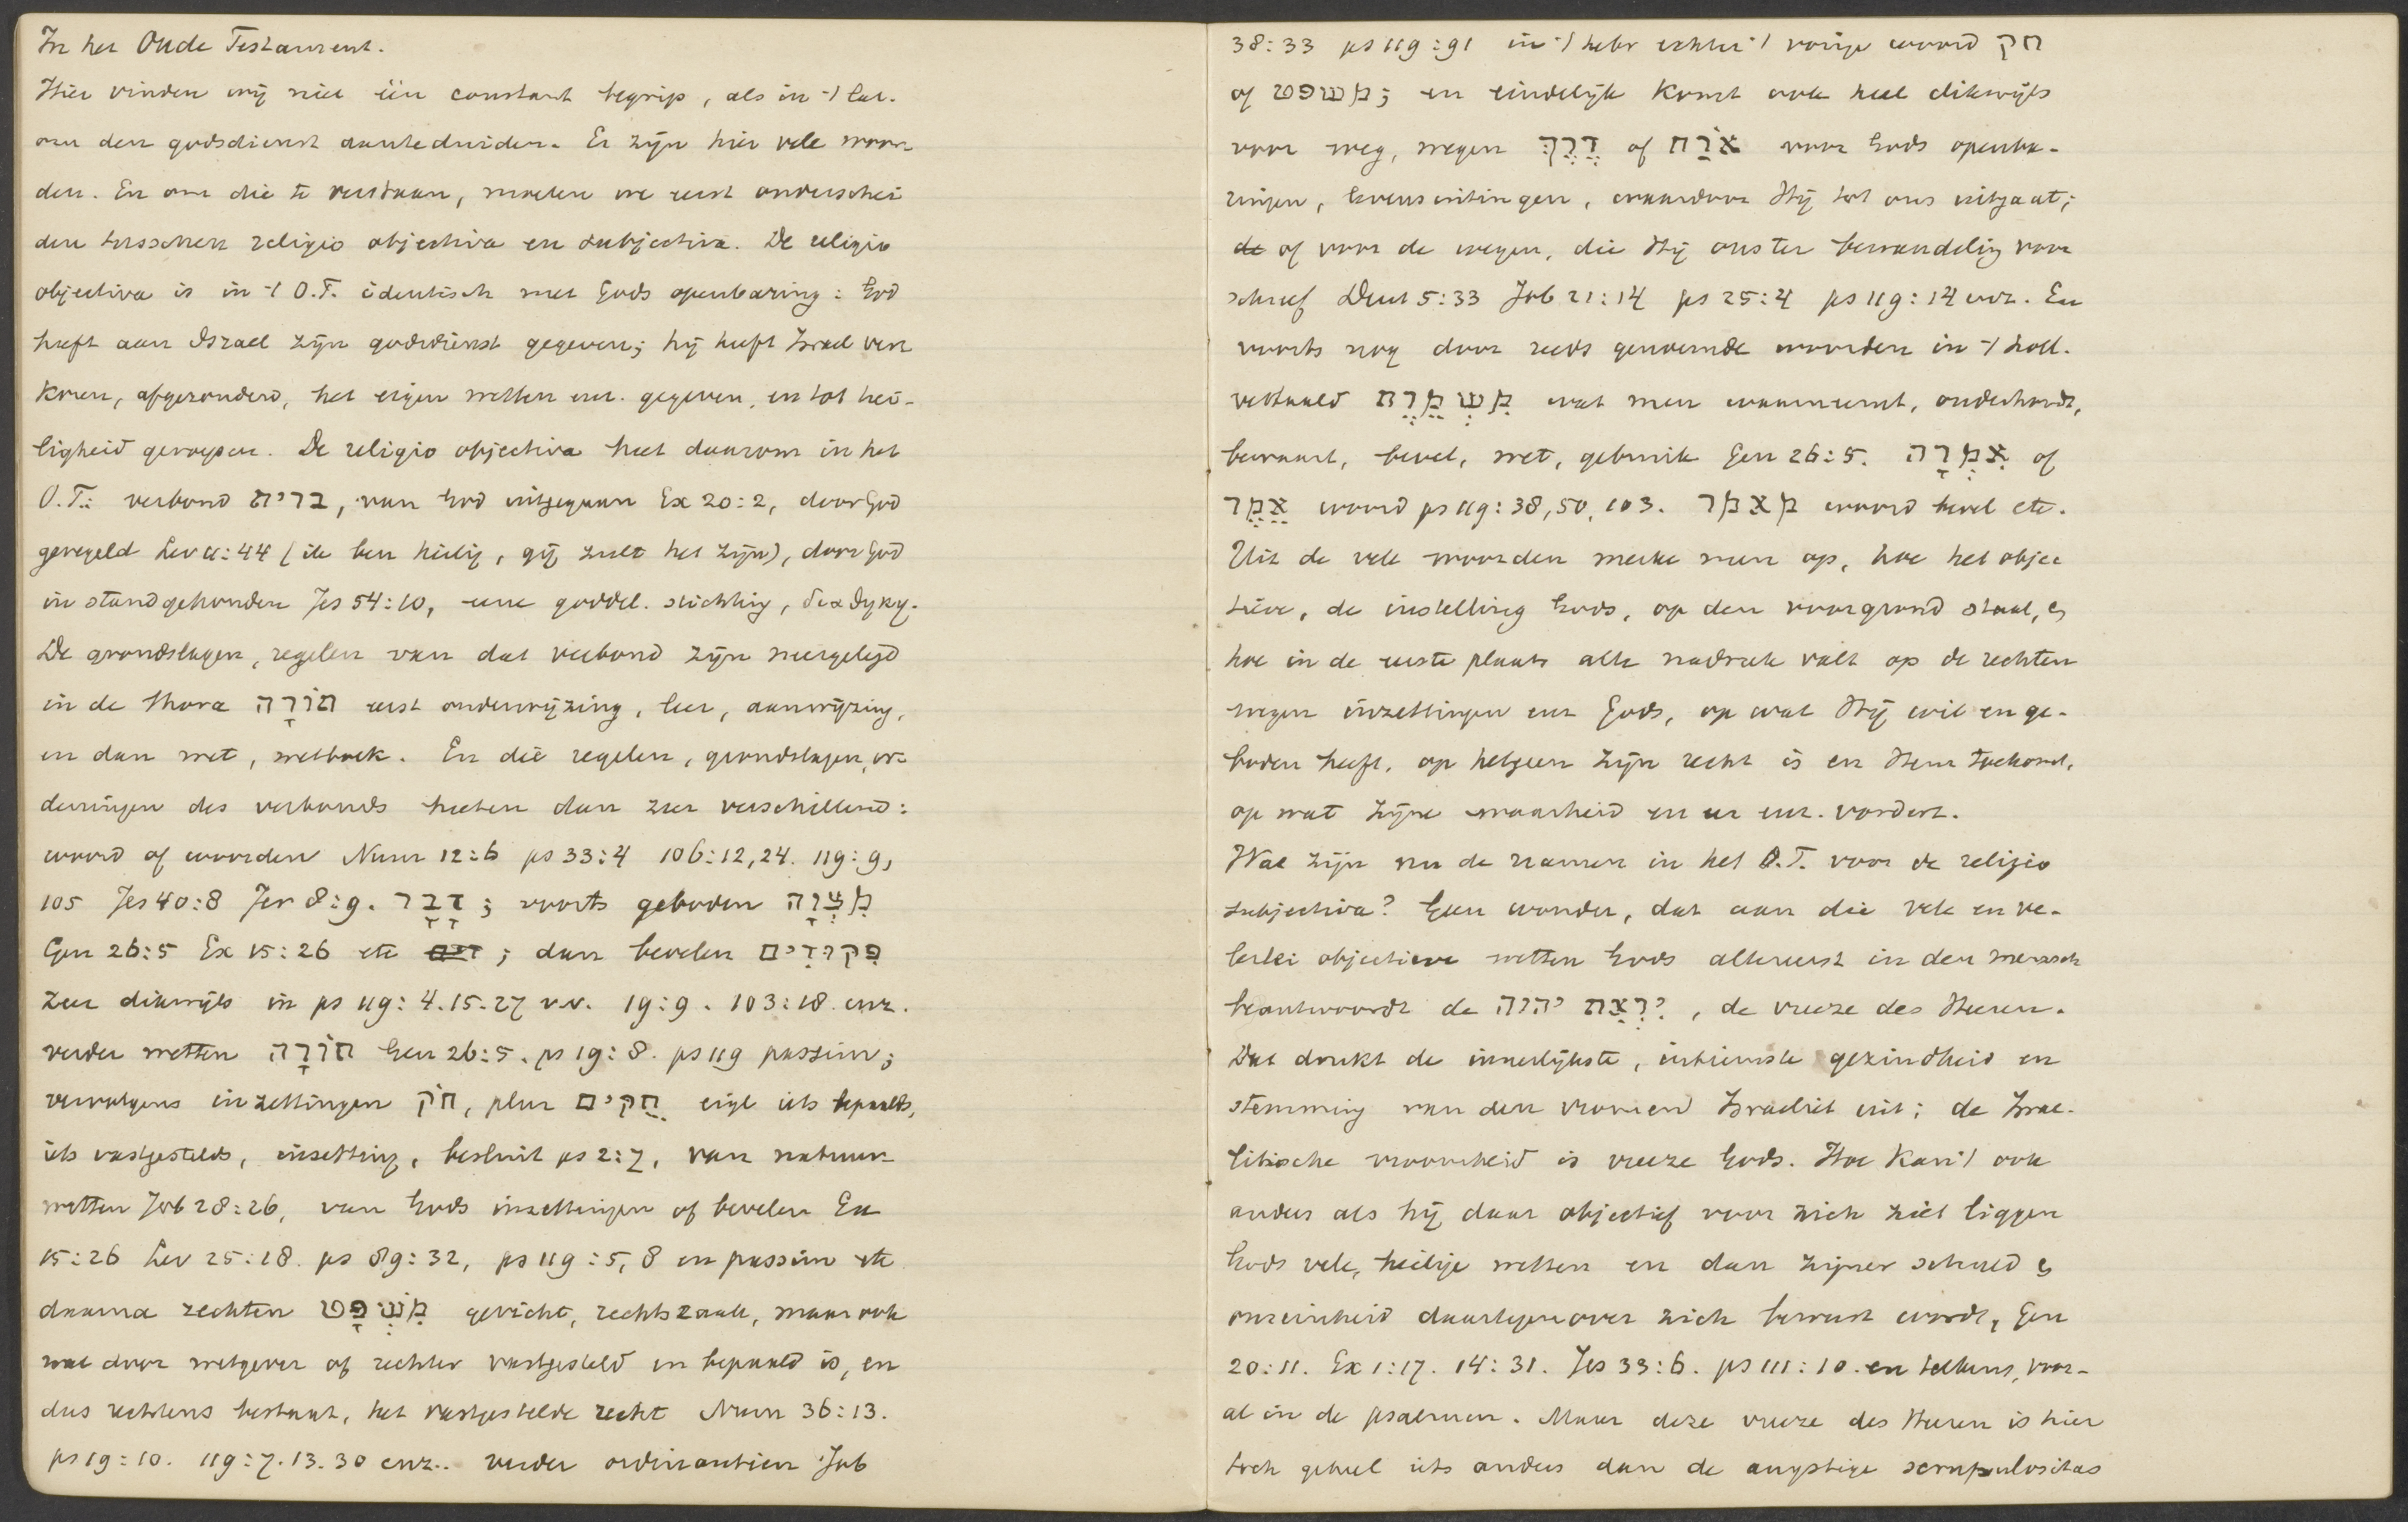 In het Oude Testament.
Hier vinden wij niet één constant begrip, als in 't Lat.
om den godsdienst aanteduiden. Er zijn hier vele woor
den. En om die te verstaan, moeten we eerst onderschei
den tusschen religio objectiva en subjectiva. De religio
objectiva is in 't O.T. identisch met Gods openbaring: God
heeft aan Israel zijn godsdienst gegeven; hij heeft Israel ver
koren, afgezonderd, het eigen wetten enz. gegeven, en tot hei-
ligheid geroepen. De religio objectiva heet daarom in het
O.T.: verbond ברית, van God uitgegaan Ex 20:2, door God
geregeld Lev 11:44 (ik ben heilig, gij zult het zijn), door God
in stand gehouden Jes 54:10, eene goddel. stichting, διαθηκη.
De grondslagen, regelen van dat verbond zijn neergelegd
in de thora תוֹרָה eerst onderwijzing, leer, aanwijzing,
en dan wet, wetboek. En die regelen, grondslagen, or-
deningen des verbonds heeten dan zeer verschillend:
woord of woorden Num 12:6 ps 33:4 106:12,24. 119:9,
105 Jes 40:8 Jer 8:9. דָבָר ; voorts geboden מִצְוָה
Gen 26:5 Ex 15:26 etc ; dan bevelen פִקּוּדִים
zeer dikwijls in ps 119: 4.15.27 v.v. 19:9. 103:18. enz.
verder wetten תוֹרָה Gen 26:5. ps 19:8. ps 119 passim;
vervolgens inzettingen חֹק, plur חֻקִים eigl iets bepaalds,
iets vastgestelds, inzetting, besluit ps 2:7, van natuur
wetten Job 28:26, van Gods inzettingen of bevelen Ex
15:26 Lev 25:18. ps 89:32, ps 119:5,8 en passim etc
daarna rechten מִשְׁפָּט gericht, rechtszaak, maar ook
wat door wetgever of rechter vastgesteld en bepaald is, en
dus rechtens bestaat, het vastgestelde recht Num 36:13.
ps 19:10. 119:7.13.30 enz.. verder ordinantien Job
38:33 ps 119:91 in 't hebr echter 't vorige woord חק
of משפט; en eindelijk komt ook heel dikwijls
voor weg, wegen דֶרֶךְ of אֹרַח voor Gods openba-
ringen, levensuitingen, waardoor Hij tot ons uitgaat;
de of voor de wegen, die Hij ons ter bewandeling voor
schreef Deut 5:33 Job 21:14 ps 25:4 ps 119:14 enz. En
voorts nog door reeds genoemde woorden in 't holl.
vertaald מִשְׁמֶרֶת wat men waarneemt, onderhoudt,
bewaart, bevel, wet, gebruik Gen 26:5. אִמְרָה of
אֵמֶר woord ps 119:38,50,103. מאמר woord bevel etc.
Uit de vele woorden merke men op, hoe het objec
tieve, de instelling Gods, op den voorgrond staat, &
hoe in de eerste plaats alle nadruk valt op de rechten
wegen inzettingen enz Gods, op wat Hij wil en ge-
boden heeft, op hetgeen zijn recht is en Hem toekomt,
op wat zijne waarheid en er enz. vordert.
Wat zijn nu de namen in het O.T. voor de religio
subjectiva? Geen wonder, dat aan die vele en ve-
lerlei objectieve wetten Gods allereerst in den mensch
beantwoordt de יִרְאַת יהוה, de vreeze des Heeren.
Dat drukt de innerlijkste, intiemste gezindheid en
stemming van den vromen Israeliet uit; de Israe-
litische vroomheid is vreeze Gods. Hoe kan 't ook
anders als hij daar objectief voor zich ziet liggen
Gods vele, heilige wetten en dan zijner schuld &
onreinheid daartegenover zich bewust wordt, Gen
20:11. Ex 1:17. 14:31. Jes 33:6. ps 111:10. en telkens, voor-
al in de psalmen. Maar deze vreeze des Heeren is hier
toch geheel iets anders dan de angstige scrupulositas